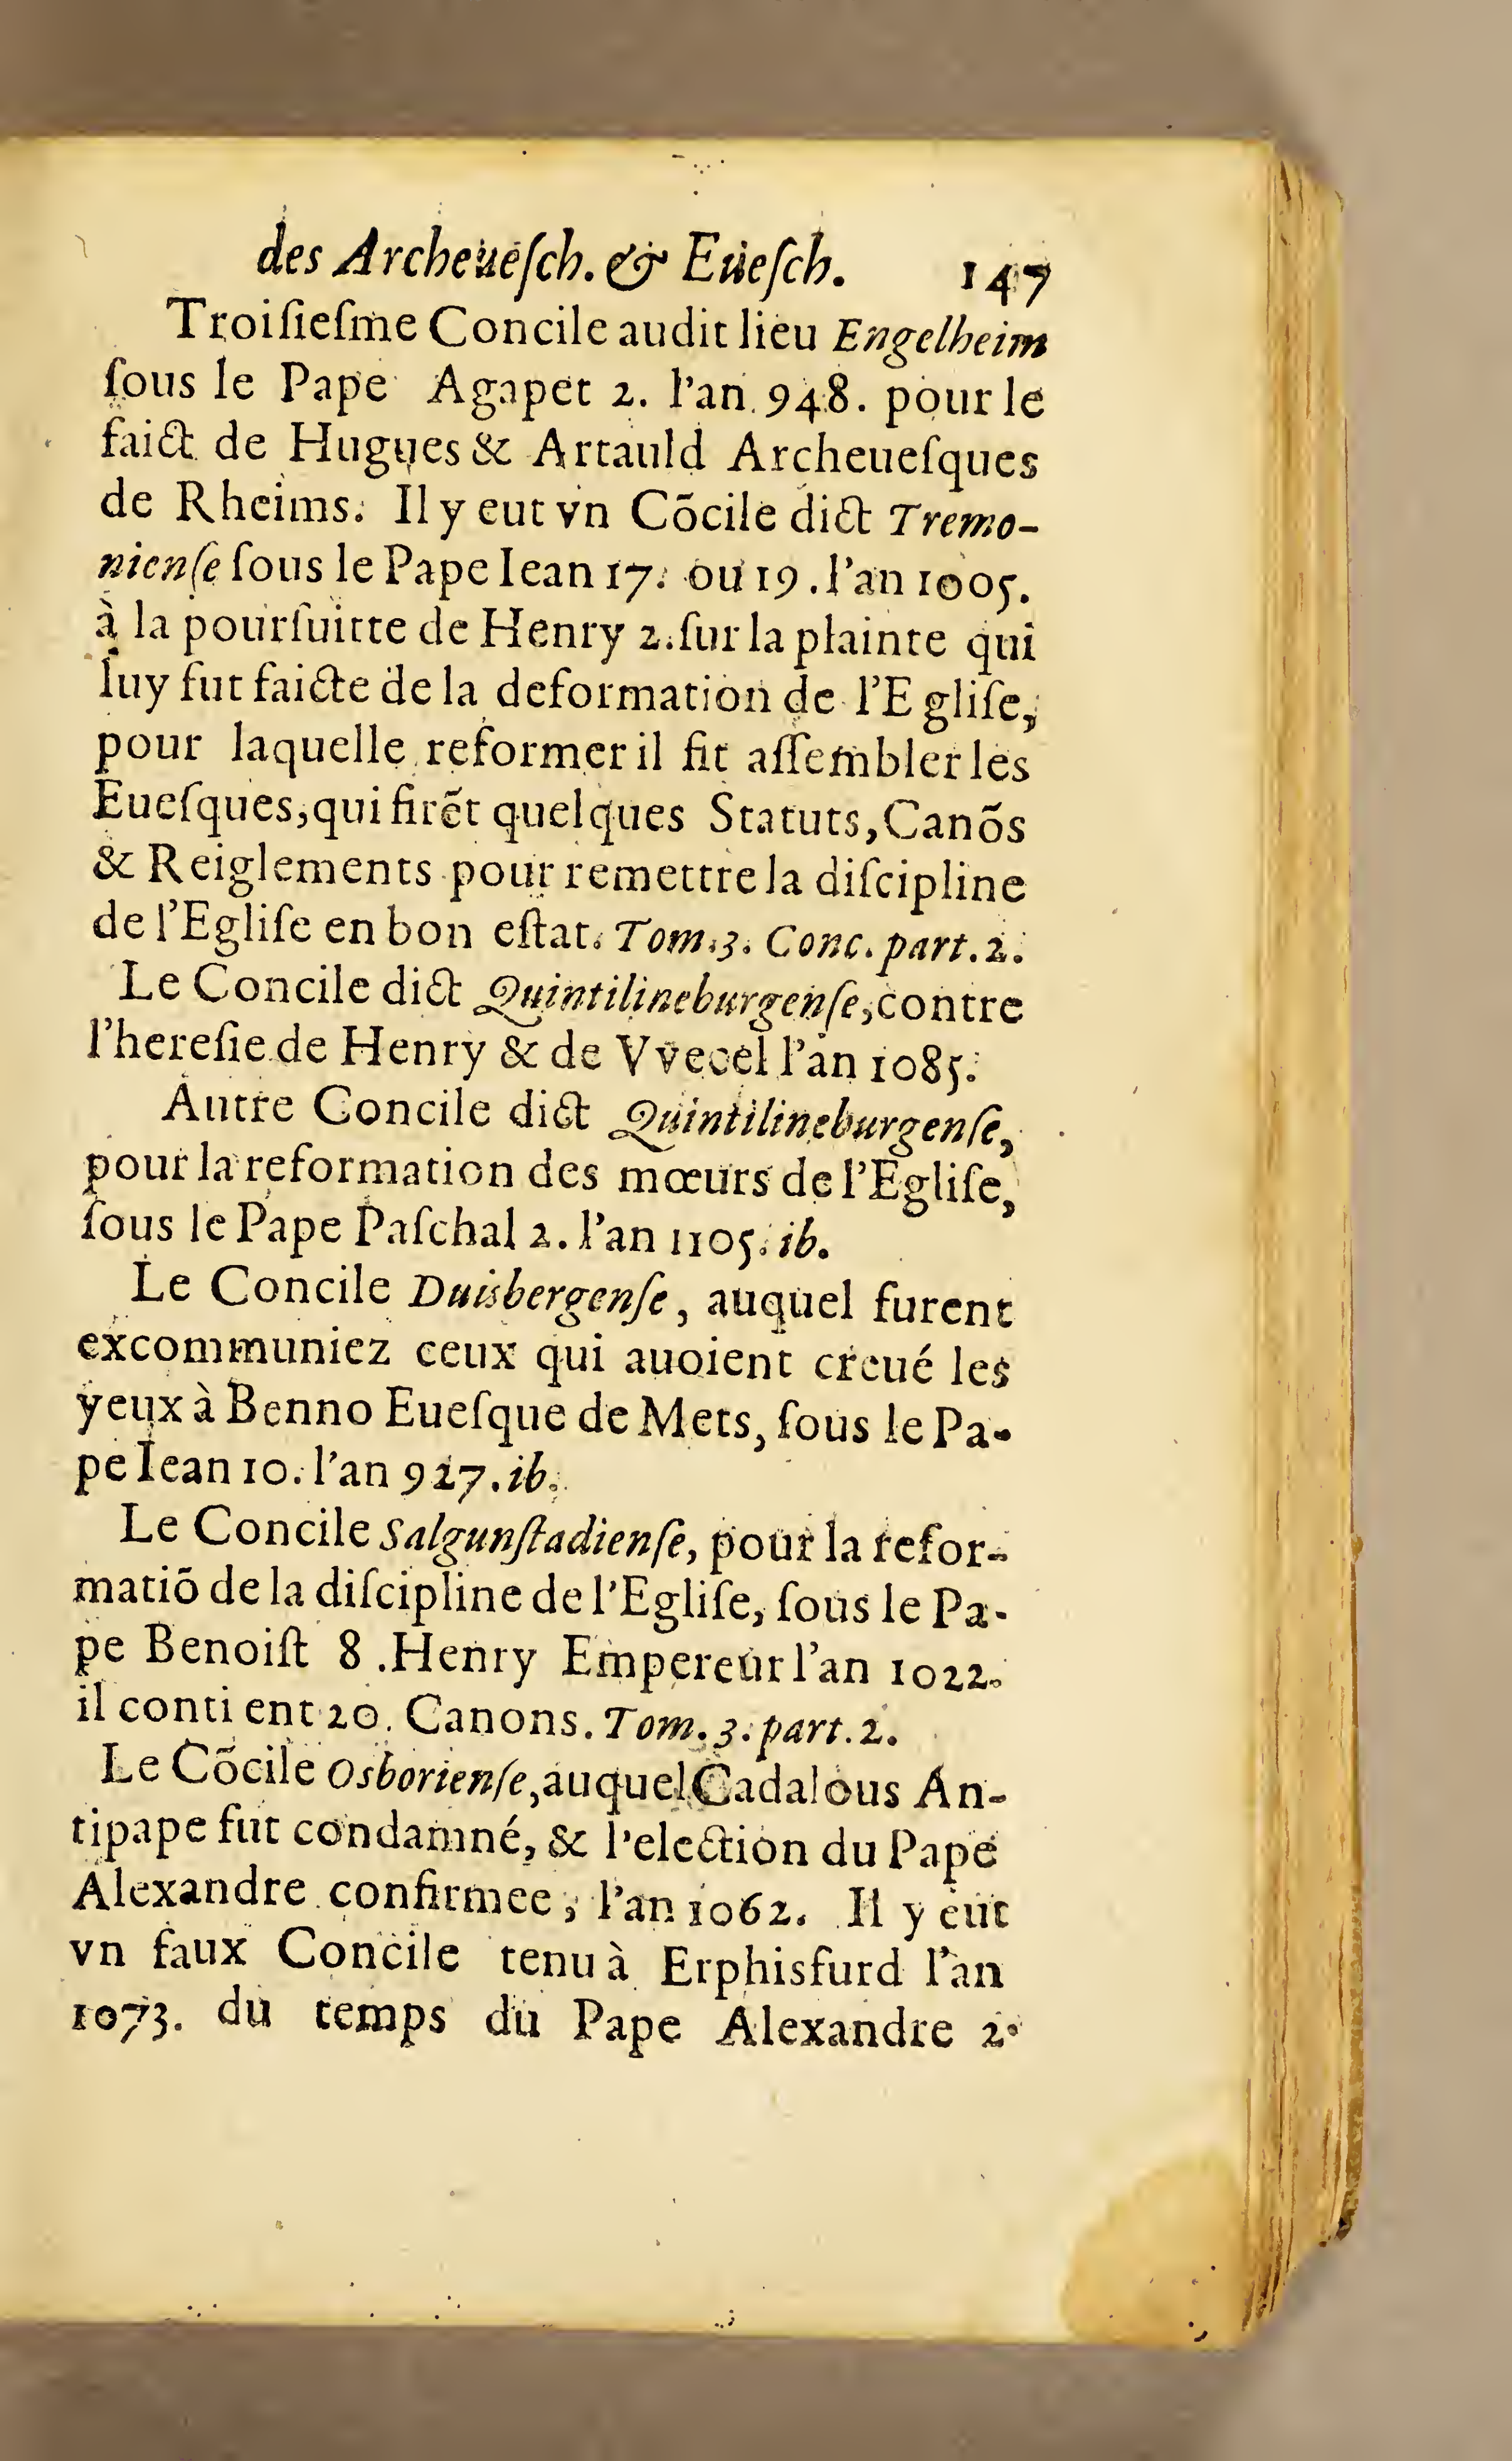 des Archeueſch. & Eueſch. 147
Troiſieſme Concile audit lieu Engelheim
ſous le Pape Agapet 2. l'an 948. pour le
faict de Hugues & Artauld Archeueſques
de Rheims. Il y eut vn Cõcile dict Tremo-
nienſe ſous le Pape Iean 17. ou 19. l'an 1005.
à la pourſuitte de Henry 2. ſur la plainte qui
luy fut faicte de la deformation de l'Egliſe,
pour laquelle reformer il fit aſſembler les
Eueſques, qui firẽt quelques Statuts, Canõs
& Reiglements pour remettre la diſcipline
de l'Egliſe en bon eſtat. Tom. 3. Conc. part. 2.
Le Concile dict Quintilineburgenſe, contre
l'hereſie de Henry & de Vvecel l'an 1085.
Autre Concile dict Quintilineburgenſe,
pour la reformation des mœurs de l'Egliſe,
ſous le Pape Paſchal 2. l'an 1105. ib.
Le Concile Duisbergenſe, auquel furent
excommuniez ceux qui auoient creué les
yeux à Benno Eueſque de Mets, ſous le Pa-
pe Iean 10. l'an 927. ib.
Le Concile Salgunſtadienſe, pour la refor-
matiõ de la diſcipline de l'Egliſe, ſous le Pa-
pe Benoiſt 8. Henry Empereur l'an 1022.
il contient 20. Canons. Tom. 3. part. 2.
Le Cõcile Osborienſe, auquel Cadalous An-
tipape fut condamné, & l'election du Pape
Alexandre confirmee, l'an 1062. Il y eut
vn faux Concile tenu à Erphisfurd l'an
1073. du temps du Pape Alexandre 2.